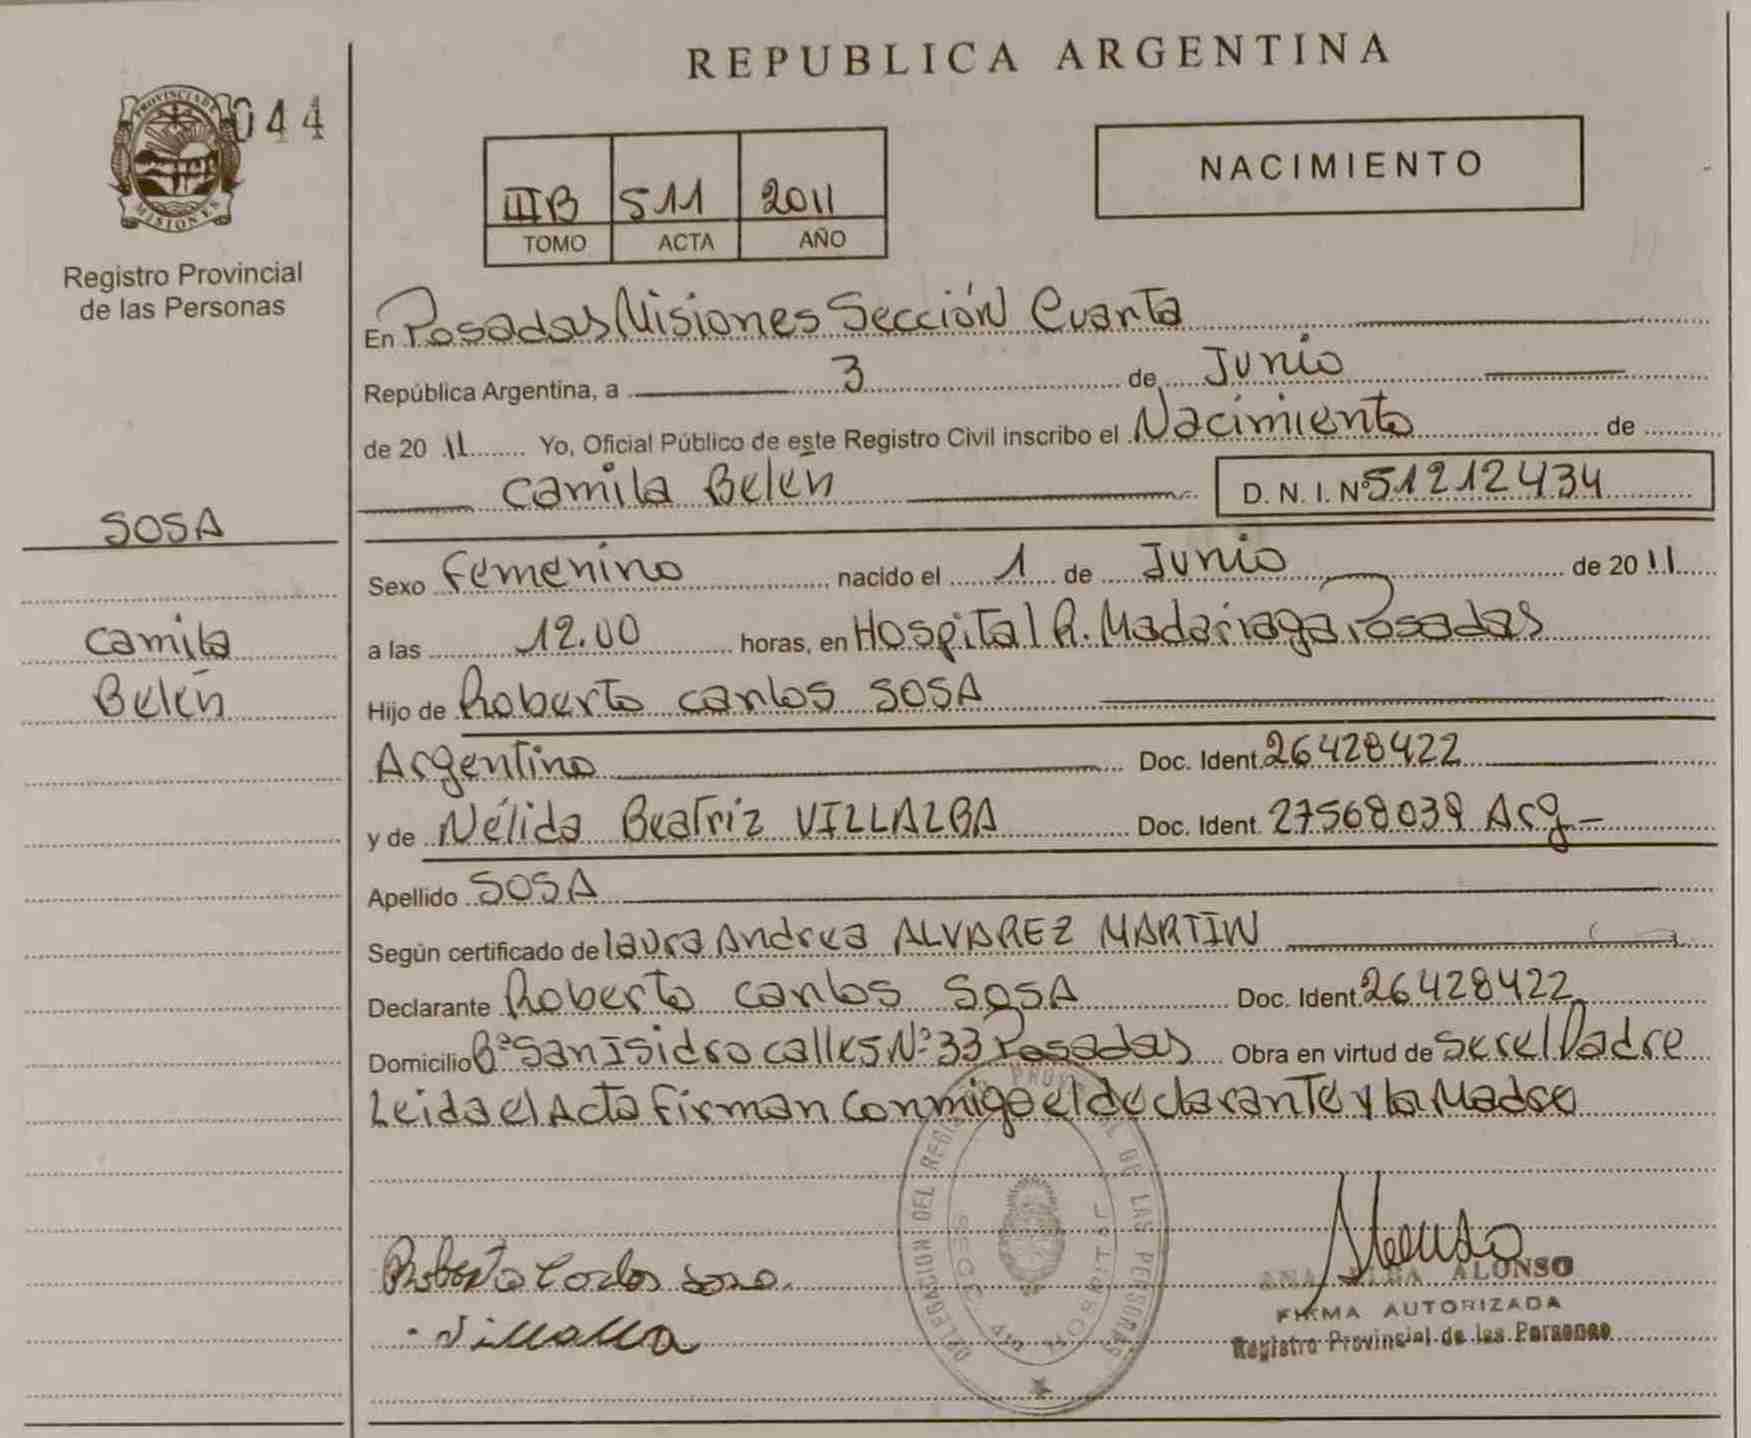 REPUBLICA ARGENTINA
PROVINCIA DE MISIONES
044
Registro Provincial
de las Personas
SOSA
Camila
Belén
IIIB 511 2011
TOMO ACTA AÑO
NACIMIENTO
En Posadas Misiones Sección Cuarta
República Argentina, a 3 de Junio
de 2011 Yo, Oficial Público de este Registro Civil inscribo el Nacimiento de
Camila Belén D. N. I. Nº 51212434
Sexo Femenino nacido el 1 de Junio de 2011
a las 12.00 horas, en Hospital R. Madariaga Posadas
Hijo de Roberto Carlos SOSA
Argentino Doc. Ident. 26428422
y de Nélida Beatriz VILLALBA Doc. Ident. 27568039 Arg-
Apellido SOSA
Según certificado de Laura Andrea ALVAREZ MARTIN
Declarante Roberto Carlos SOSA Doc. Ident. 26428422
Domicilio Bº San Isidro calle 5 Nº 33 Posadas Obra en virtud de Ser el Padre
Leida el Acta Firman Conmigo el declarante y la Madre
Roberto Carlos Sosa
Villalba
DELEGACION DEL REGISTRO PROVINCIAL DE LAS PERSONAS
ALONSO
FIRMA AUTORIZADA
Registro Provincial de las Personas